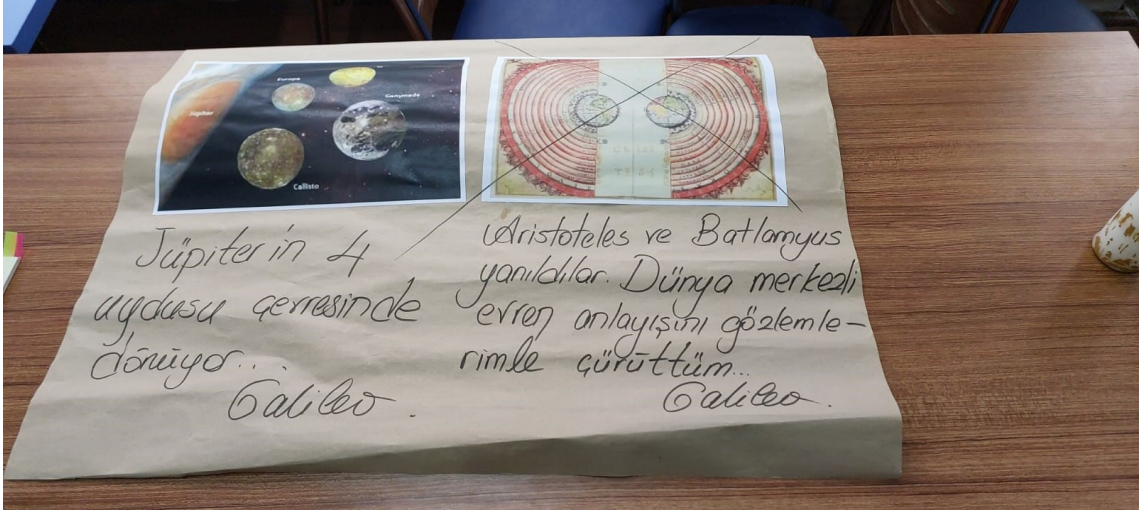 Europa
Ganymede
Jüpiter
Callisto
Jüpiter'in 4
uydusu çevresinde
dönüyor...
Galileo.
Aristoteles ve Batlamyus
yanıldılar. Dünya merkezli
evren anlayışını gözlemle-
rimle çürüttüm...
Galileo.